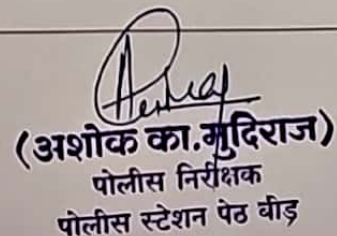 (अशोक का.मुदिराज)
पोलीस निरीक्षक
पोलीस स्टेशन पेठ बीड